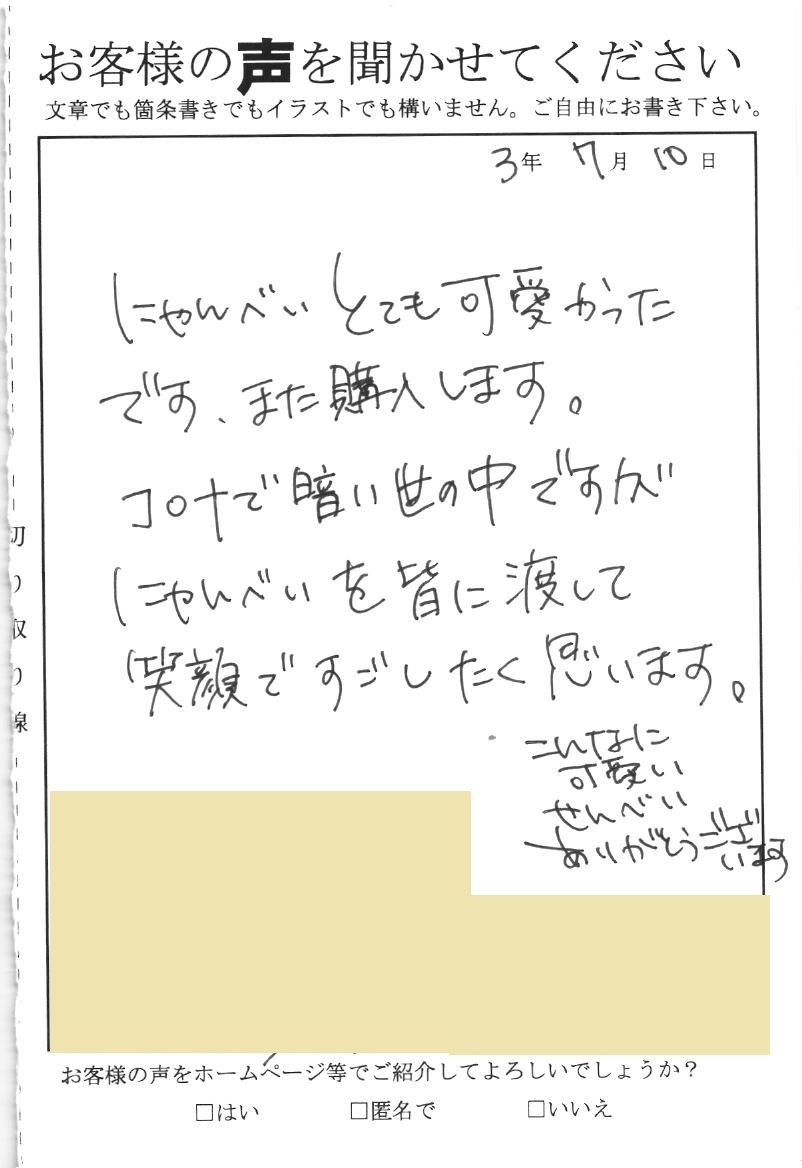 お客様の声を聞かせてください
文章でも箇条書きでもイラストでも構いません。ご自由にお書き下さい。
3年 7月 10日
にゃんべい とても可愛かった
です、また購入します。
コロナで暗い世の中ですが
にゃんべいを皆に渡して
笑顔ですごしたく思います。
こんなに
可愛い
せんべい
ありがとうござ
います
切り取り線
お客様の声をホームページ等でご紹介してよろしいでしょうか？
□はい □匿名で □いいえ